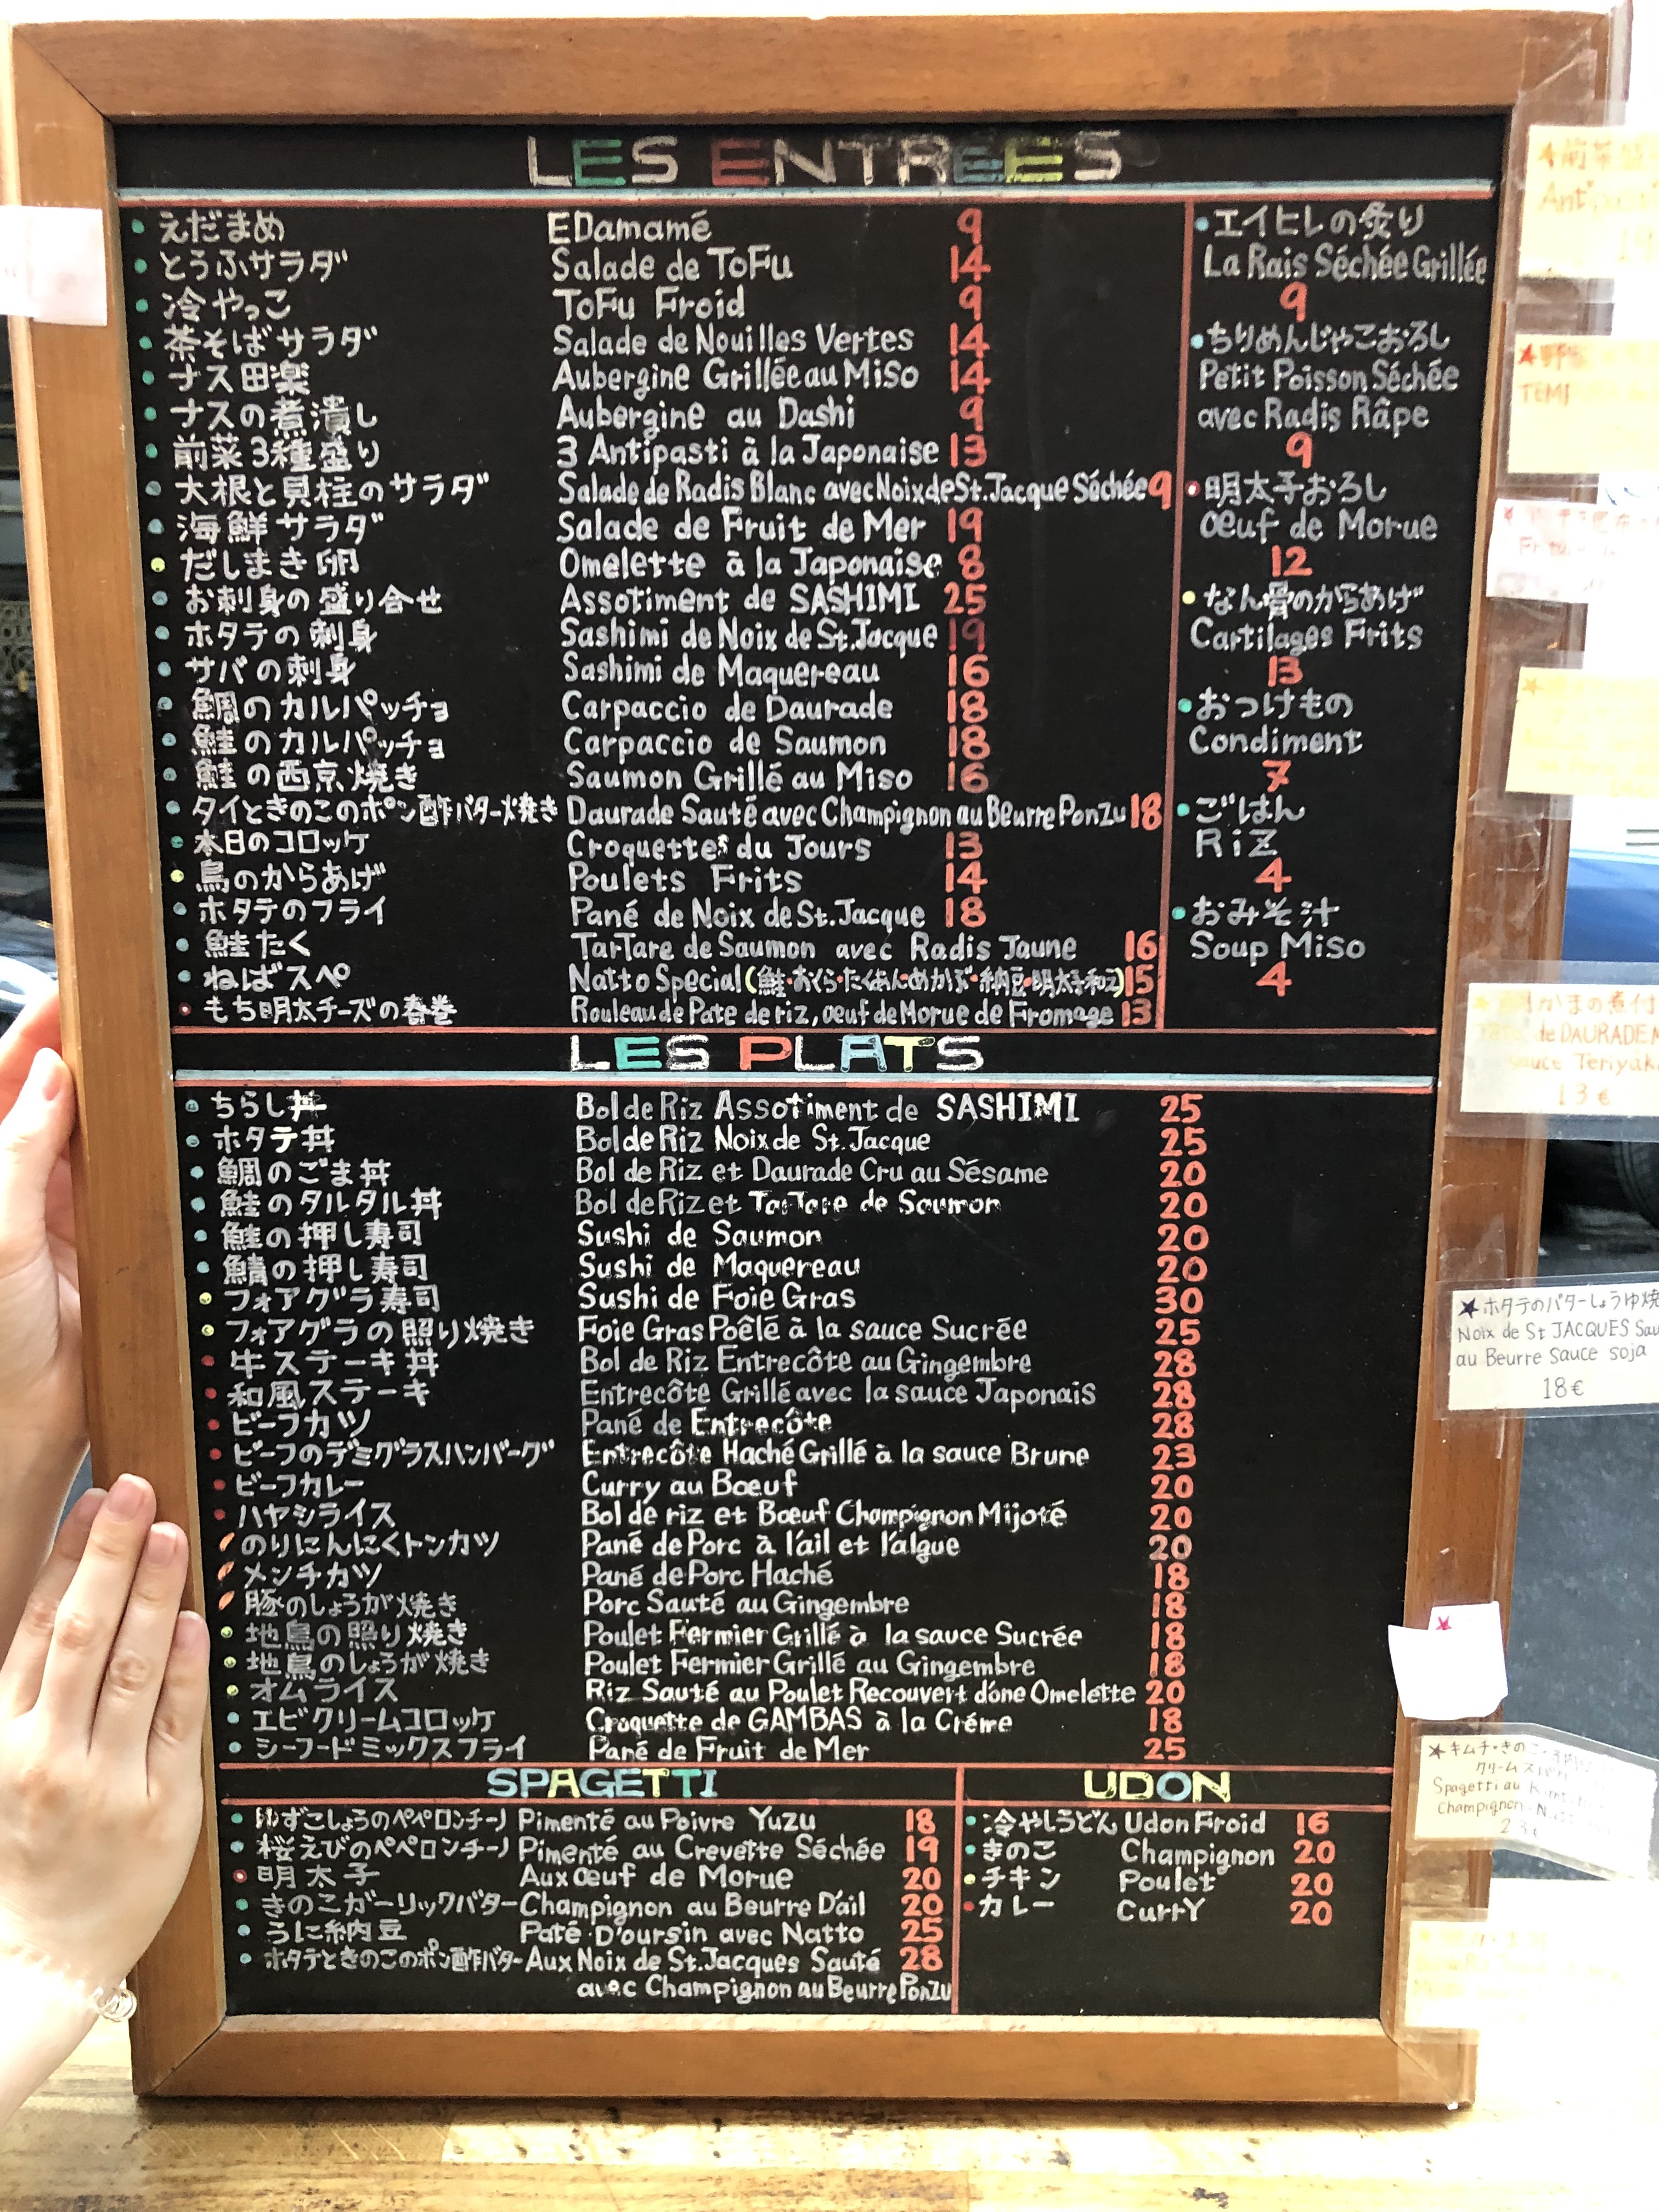 LES ENTREES
えだまめ EDamamé 9
とうふサラダ Salade de ToFu 14
冷やっこ ToFu Froid 9
茶そばサラダ Salade de Nouilles Vertes 14
ナス田楽 Aubergine Grillée au Miso 14
ナスの煮潰し Aubergine au Dashi 9
前菜3種盛り 3 Antipasti à la Japonaise 13
大根と貝柱のサラダ Salade de Radis Blanc avec Noix de St.Jacque Séchée 9
海鮮サラダ Salade de Fruit de Mer 19
だしまき卵 Omelette à la Japonaise 8
お刺身の盛り合せ Assotiment de SASHIMI 25
ホタテの刺身 Sashimi de Noix de St.Jacque 19
サバの刺身 Sashimi de Maquereau 16
鯛のカルパッチョ Carpaccio de Daurade 18
鮭のカルパッチョ Carpaccio de Saumon 18
鮭の西京焼き Saumon Grillé au Miso 16
タイときのこのポン酢バター焼き Daurade Sauté avec Champignon au Beurre Ponzu 18
本日のコロッケ Croquettes du Jours 13
鳥のからあげ Poulets Frits 14
ホタテのフライ Pané de Noix de St.Jacque 18
鮭たく TarTare de Saumon avec Radis Jaune 16
ねばスペ Natto Special (鮭・おくら・たくあん・めかぶ・納豆・明太子和え) 15
もち明太チーズの春巻 Rouleau de Pate de riz, oeuf de Morue de Fromage 13
エイヒレの炙り
La Rais Séchée Grillée
9
ちりめんじゃこおろし
Petit Poisson Séchée
avec Radis Râpe
9
明太子おろし
Oeuf de Morue
12
なん骨のからあげ
Cartilages Frits
13
おつけもの
Condiment
7
ごはん
RiZ
4
おみそ汁
Soup Miso
4
LES PLATS
ちらし丼 Bol de Riz Assotiment de SASHIMI 25
ホタテ丼 Bol de Riz Noix de St.Jacque 25
鯛のごま丼 Bol de Riz et Daurade Cru au Sésame 20
鮭のタルタル丼 Bol de Riz et TarTare de Saumon 20
鮭の押し寿司 Sushi de Saumon 20
鯖の押し寿司 Sushi de Maquereau 20
フォアグラ寿司 Sushi de Foie Gras 30
フォアグラの照り焼き Foie Gras Poêlé à la sauce Sucrée 25
牛ステーキ丼 Bol de Riz Entrecôte au Gingembre 28
和風ステーキ Entrecôte Grillé avec la sauce Japonais 28
ビーフカツ Pané de Entrecôte 28
ビーフのデミグラスハンバーグ Entrecôte Haché Grillé à la sauce Brune 23
ビーフカレー Curry au Boeuf 20
ハヤシライス Bol de riz et Boeuf Champignon Mijoté 20
のりにんにくトンカツ Pané de Porc à l'ail et l'algue 20
メンチカツ Pané de Porc Haché 18
豚のしょうが焼き Porc Sauté au Gingembre 18
地鳥の照り焼き Poulet Fermier Grillé à la sauce Sucrée 18
地鳥のしょうが焼き Poulet Fermier Grillé au Gingembre 18
オムライス Riz Sauté au Poulet Recouvert d'one Omelette 20
エビクリームコロッケ Croquette de GAMBAS à la Créme 18
シーフードミックスフライ Pané de Fruit de Mer 25
SPAGETTI
ゆずこしょうのペペロンチーノ Pimenté au Poivre Yuzu 18
桜えびのペペロンチーノ Pimenté au Crevette Séchée 19
明太子 Aux Oeuf de Morue 20
きのこガーリックバター Champignon au Beurre D'ail 20
うに納豆 Paté D'oursin avec Natto 25
ホタテときのこのポン酢バター Aux Noix de St.Jacques Sauté 28
avec Champignon au Beurre Ponzu
UDON
冷やしうどん Udon Froid 16
きのこ Champignon 20
チキン Poulet 20
カレー CurrY 20
かまの煮付
de DAURADE
sauce Teriyak
13€
★ホタテのバターしょうゆ焼
Noix de St JACQUES Sau
au Beurre sauce soja
18€
★キムチ・きのこ
クリームスパ
Spagetti au
Champignon